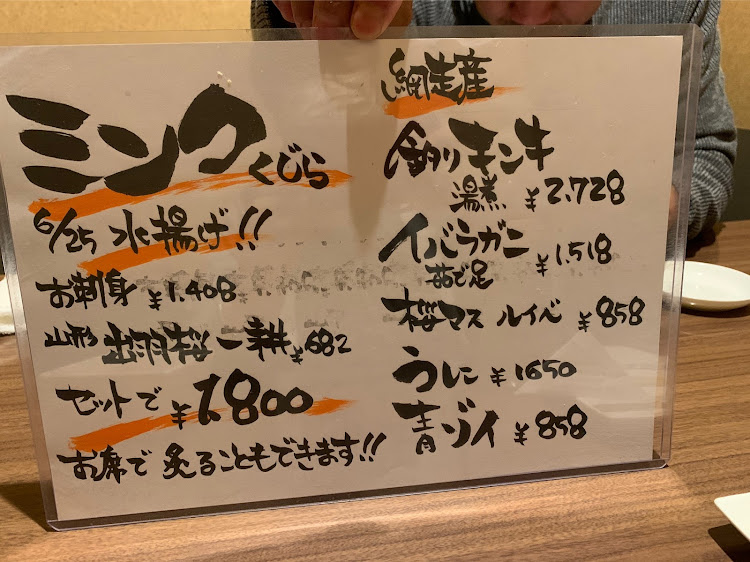 ミンククじら
6/25 水揚げ!!
お刺身 ¥1.408
山形 出羽桜 一耕 ¥682
セットで ¥1.800
お席で 炙ることもできます!!
網走産
釣りキンキ
湯煮 ¥2.728
イバラガニ
茹で足 ¥1.518
桜マス ルイベ ¥858
うに ¥1650
青ゾイ ¥858